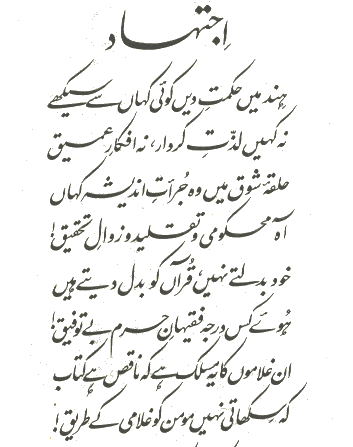 اِجتہاد
ہند میں حکمتِ دیں کوئی کہاں سے سیکھے
نہ کہیں لذّتِ کردار، نہ افکارِ عمیق
حلقۂ شوق میں وہ جُرأتِ اندیشہ کہاں
آہ محکومی و تقلید و زوالِ تحقیق!
خود بدلتے نہیں، قُرآں کو بدل دیتے ہیں
ہُوئے کس درجہ فقیہانِ حرم بے توفیق!
ان غلاموں کا یہ مسلک ہے کہ ناقص ہے کتاب
کہ سِکھاتی نہیں مومن کو غلامی کے طریق!